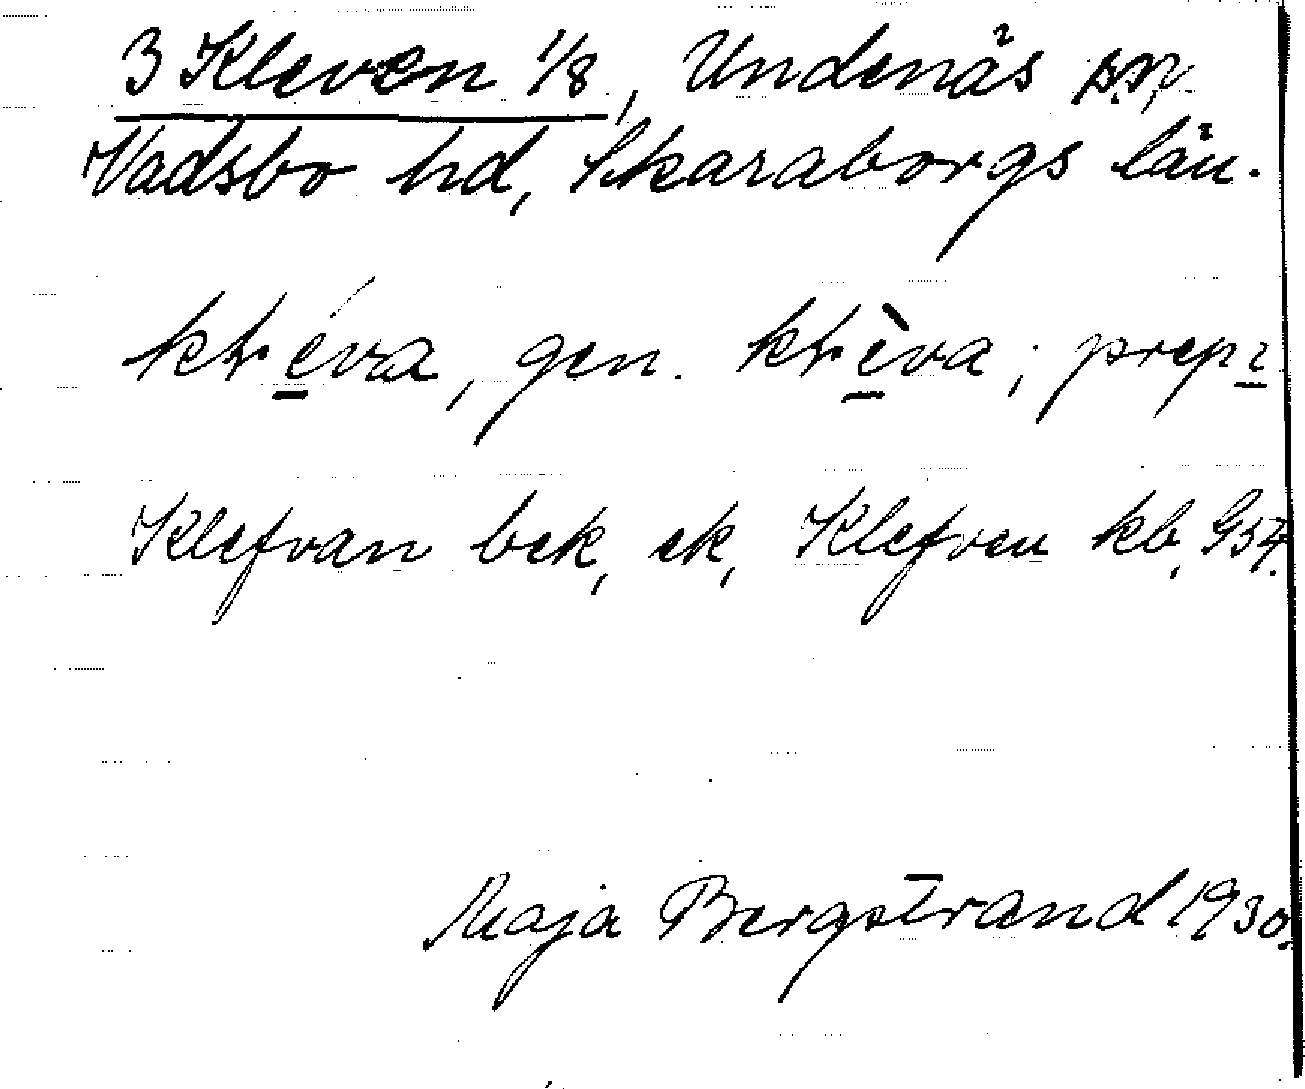 3 Kleven 1/8, Undenäs sn.
Vadsbo hd, Skaraborgs län.
gen. ; prep i
Klefvan bek, ek, Klefven kb, G34.
Maja Bergstrand 1930.